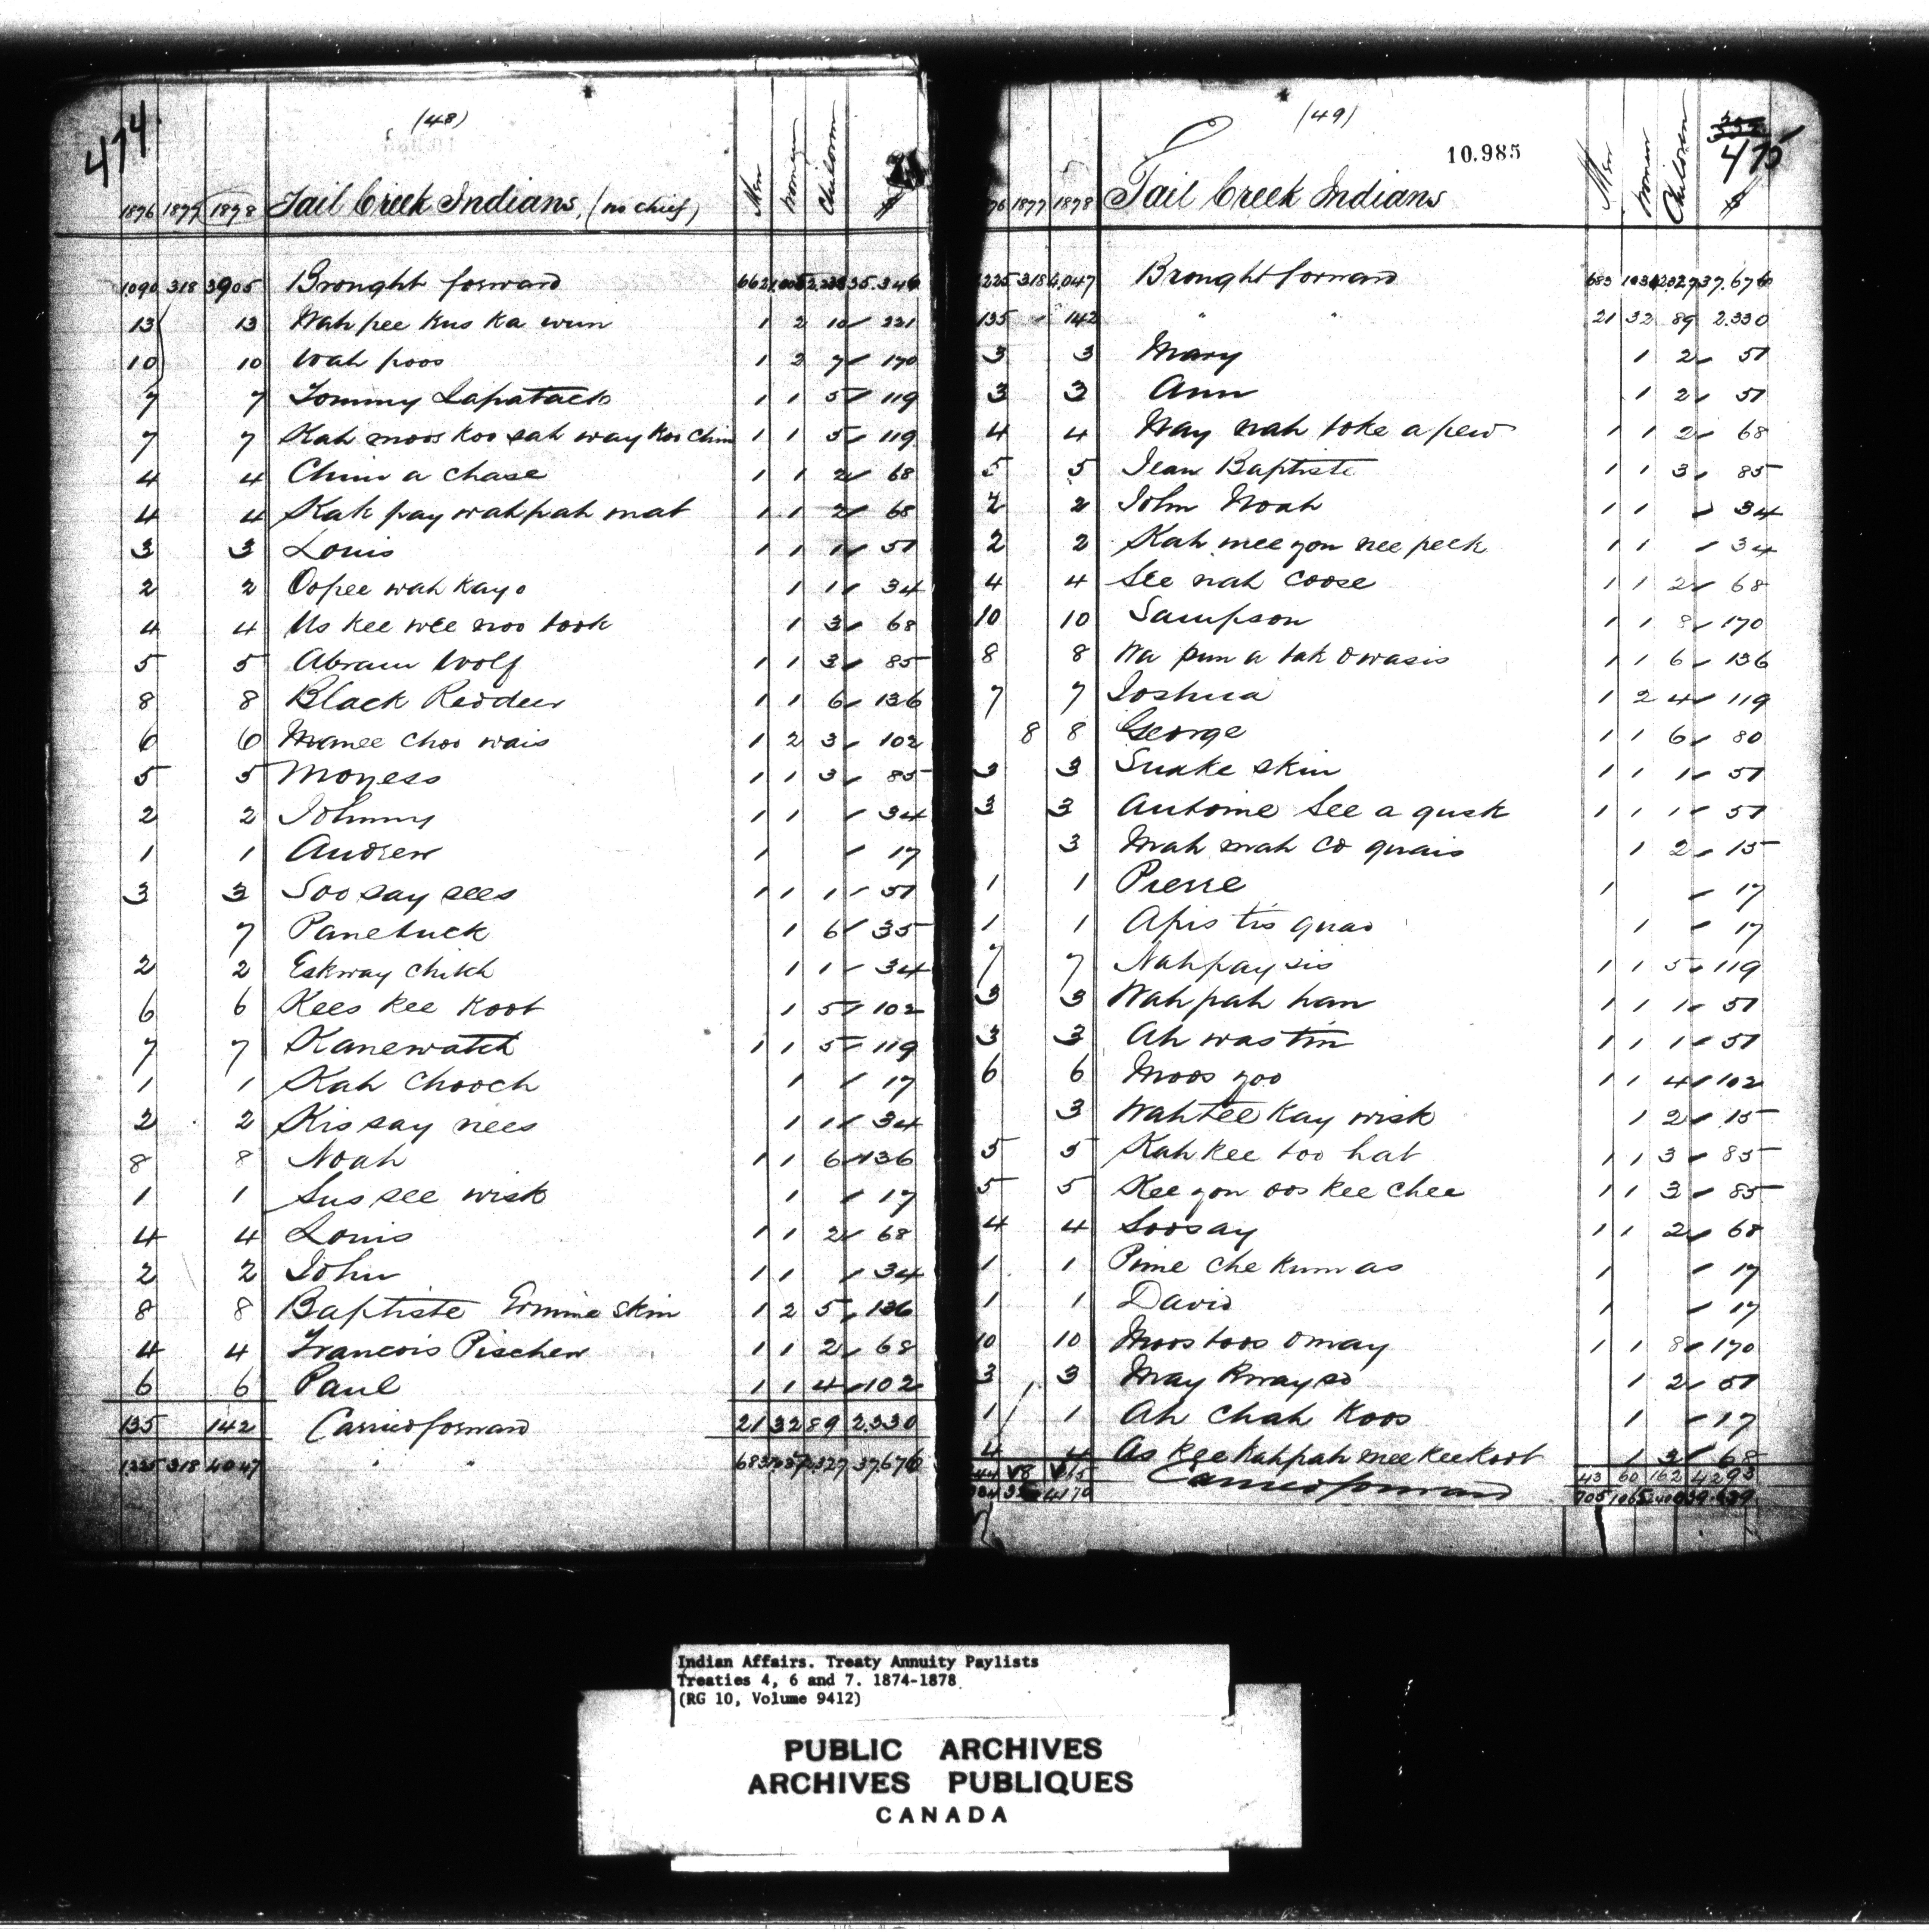 474
(48)
1876 1877 1878 Tail Creek Indians, (no chief) Men Women Children $
1090 318 3905 Brought forward 662 35.346
13 13 Wah pee kus ka wun 1 2 10 221
10 10 Wah poos 1 2 7 170
7 7 Tommy Lapatack 1 1 5 119
7 7 Kah moos koo sah way koo chin 1 1 5 119
4 4 Chim a chase 1 1 2 68
4 4 Kah pay wah pah mat 1 1 2 68
3 3 Louis 1 1 1 51
2 2 Oopee wah kayo 1 1 34
4 4 Us kee wee noo took 1 3 68
5 5 Abram Wolf 1 1 3 85
8 8 Black 1 1 6 136
6 6 choo wais 1 2 3 102
5 5 Moyess 1 1 3 85
2 2 Johnny 1 1 34
1 1 Andrew 1 17
3 3 Soo say sees 1 1 1 51
7 Panetuck 1 6 35
2 2 Eskway chich 1 1 34
6 6 Kees kee koot 1 5 102
7 7 Kanewatch 1 1 5 119
1 1 Kah chooch 1 17
2 2 Kis say nees 1 1 34
8 8 Noah 1 1 6 136
1 1 Sus see wisk 1 17
4 4 Louis 1 1 2 68
2 2 John 1 1 34
8 8 Baptiste Ermine skin 1 2 5 136
4 4 Francois Pischen 1 1 2 68
6 6 Paul 1 1 4 102
135 142 Carried forward 21 32 89 2330
1225 318 4047 " " 683 2327 37,676
(49)
10.985
475
76 1877 1878 Tail Creek Indians Men Women Children $
1225 318 4,047 Brought forward 683 37.676
135 142 " " 21 32 89 2.330
3 3 Mary 1 2 51
3 3 Ann 1 2 51
4 4 Way nah toke a pew 1 1 2 68
5 5 Jean Baptiste 1 1 3 85
2 2 John Noah 1 1 34
2 2 Kah mee you nee peek 1 1 34
4 4 See nah coose 1 1 2 68
10 10 Sampson 1 1 8 170
8 8 Wa pun a tak owasis 1 1 6 136
7 7 Joshua 1 2 4 119
8 8 George 1 1 6 80
3 3 Snake skin 1 1 1 51
3 3 Antoine See a qusk 1 1 1 51
3 Mah mah co quais 1 2 15
1 1 Pierre 1 17
1 1 Apis tis quao 1 17
7 7 Nah pay sis 1 1 5 119
3 3 Wah pah han 1 1 1 51
3 3 Ah was tin 1 1 1 51
6 6 Moos yoo 1 1 4 102
3 Wah tee kay wisk 1 2 15
5 5 Kah kee too hat 1 1 3 85
5 5 Kee you oos kee chee 1 1 3 85
4 4 Soosay 1 1 2 68
1 1 Pime che kum as 1 17
1 1 David 1 17
10 10 Moos toos omay 1 1 8 170
3 3 May kway so 1 2 51
1 1 Ah chah koos 1 17
4 4 As kee kah pah mee kee koot 1 3 68
Carried forward 43 60 162 4293
4170 705
Indian Affairs. Treaty Annuity Paylists
Treaties 4, 6 and 7. 1874-1878
(RG 10, Volume 9412)
PUBLIC ARCHIVES
ARCHIVES PUBLIQUES
CANADA